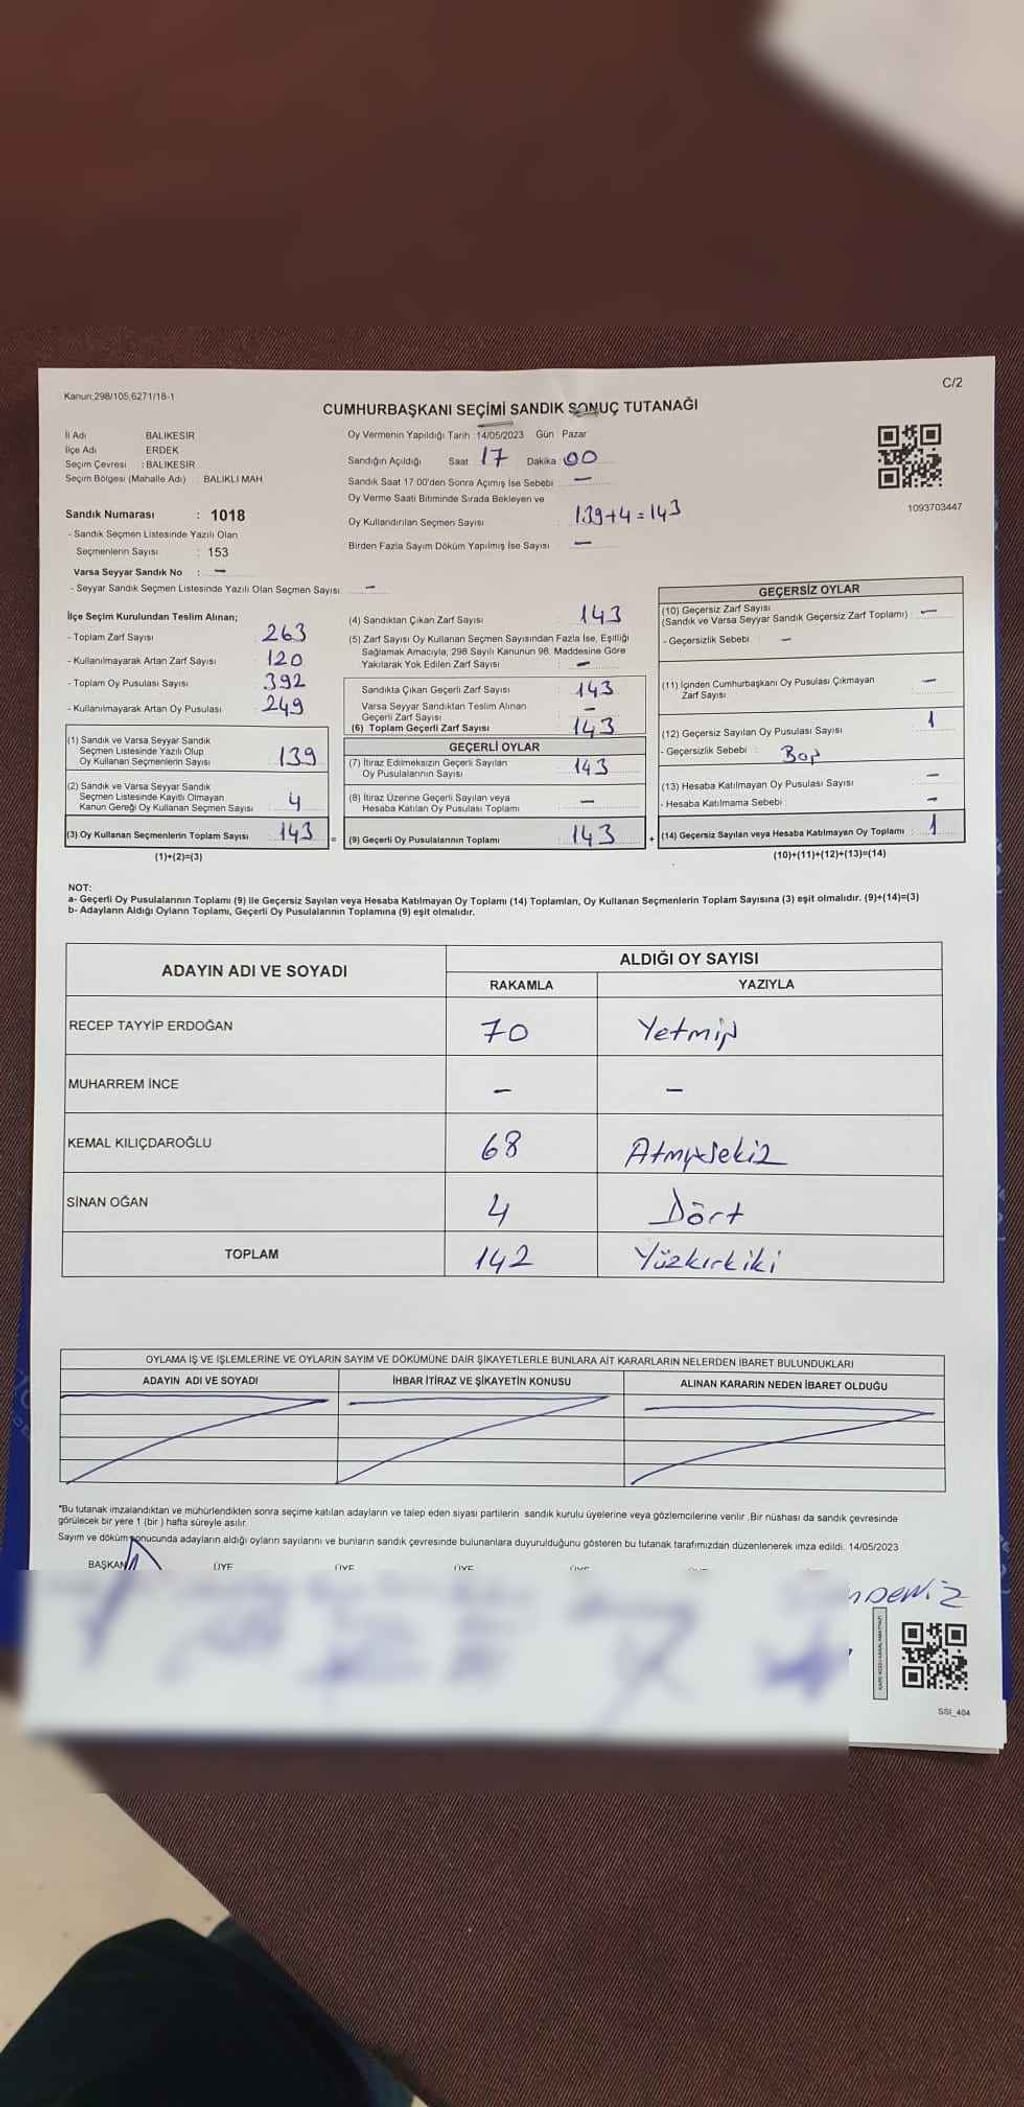 C/2
Kanun:298/105,6271/18-1
CUMHURBAŞKANI SEÇİMİ SANDIK SONUÇ TUTANAĞI
İl Adı BALIKESİR
İlçe Adı ERDEK
Seçim Çevresi : BALIKESİR
Seçim Bölgesi (Mahalle Adı) : BALIKLI MAH
Sandık Numarası : 1018
- Sandık Seçmen Listesinde Yazılı Olan
Seçmenlerin Sayısı : 153
Varsa Seyyar Sandık No : –
- Seyyar Sandık Seçmen Listesinde Yazılı Olan Seçmen Sayısı: –
Oy Vermenin Yapıldığı Tarih :14/05/2023 Gün Pazar
Sandığın Açıldığı Saat 17 Dakika 00
Sandık Saat 17:00'den Sonra Açımış İse Sebebi –
Oy Verme Saati Bitiminde Sırada Bekleyen ve
Oy Kullandırılan Seçmen Sayısı : 139+4=143
Birden Fazla Sayım Döküm Yapılmış İse Sayısı –
1093703447
İlçe Seçim Kurulundan Teslim Alınan;
- Toplam Zarf Sayısı 263
- Kullanılmayarak Artan Zarf Sayısı 120
- Toplam Oy Pusulası Sayısı 392
- Kullanılmayarak Artan Oy Pusulası 249
(1) Sandık ve Varsa Seyyar Sandık
Seçmen Listesinde Yazılı Olup
Oy Kullanan Seçmenlerin Sayısı 139
(2) Sandık ve Varsa Seyyar Sandık
Seçmen Listesinde Kayıtlı Olmayan
Kanun Gereği Oy Kullanan Seçmen Sayısı 4
(3) Oy Kullanan Seçmenlerin Toplam Sayısı 143 =
(1)+(2)=(3)
(4) Sandıktan Çıkan Zarf Sayısı 143
(5) Zarf Sayısı Oy Kullanan Seçmen Sayısından Fazla İse, Eşitliği
Sağlamak Amacıyla, 298 Sayılı Kanunun 98. Maddesine Göre
Yakılarak Yok Edilen Zarf Sayısı –
Sandıkta Çıkan Geçerli Zarf Sayısı 143
Varsa Seyyar Sandıktan Teslim Alınan
Geçerli Zarf Sayısı –
(6) Toplam Geçerli Zarf Sayısı 143
GEÇERLİ OYLAR
(7) İtiraz Edilmeksizin Geçerli Sayılan
Oy Pusulalarının Sayısı 143
(8) İtiraz Üzerine Geçerli Sayılan veya
Hesaba Katılan Oy Pusulası Toplamı –
(9) Geçerli Oy Pusulalarının Toplamı 143 +
GEÇERSİZ OYLAR
(10) Geçersiz Zarf Sayısı
(Sandık ve Varsa Seyyar Sandık Geçersiz Zarf Toplamı) –
- Geçersizlik Sebebi –
(11) İçinden Cumhurbaşkanı Oy Pusulası Çıkmayan
Zarf Sayısı –
(12) Geçersiz Sayılan Oy Pusulası Sayısı 1
- Geçersizlik Sebebi : Boş
(13) Hesaba Katılmayan Oy Pusulası Sayısı –
- Hesaba Katılmama Sebebi –
(14) Geçersiz Sayılan veya Hesaba Katılmayan Oy Toplamı 1
(10)+(11)+(12)+(13)=(14)
NOT:
a- Geçerli Oy Pusulalarının Toplamı (9) ile Geçersiz Sayılan veya Hesaba Katılmayan Oy Toplamı (14) Toplamları, Oy Kullanan Seçmenlerin Toplam Sayısına (3) eşit olmalıdır. (9)+(14)=(3)
b- Adayların Aldığı Oyların Toplamı, Geçerli Oy Pusulalarının Toplamına (9) eşit olmalıdır.
ADAYIN ADI VE SOYADI ALDIĞI OY SAYISI
RAKAMLA YAZIYLA
RECEP TAYYİP ERDOĞAN 70 Yetmiş
MUHARREM İNCE – –
KEMAL KILIÇDAROĞLU 68 Atmışsekiz
SİNAN OĞAN 4 Dört
TOPLAM 142 Yüzkırkiki
OYLAMA İŞ VE İŞLEMLERİNE VE OYLARIN SAYIM VE DÖKÜMÜNE DAİR ŞİKAYETLERLE BUNLARA AİT KARARLARIN NELERDEN İBARET BULUNDUKLARI
ADAYIN ADI VE SOYADI İHBAR İTİRAZ VE ŞİKAYETİN KONUSU ALINAN KARARIN NEDEN İBARET OLDUĞU
*Bu tutanak imzalandıktan ve mühürlendikten sonra seçime katılan adayların ve talep eden siyasi partilerin sandık kurulu üyelerine veya gözlemcilerine verilir .Bir nüshası da sandık çevresinde
görülecek bir yere 1 (bir ) hafta süreyle asılır.
Sayım ve döküm sonucunda adayların aldığı oyların sayılarını ve bunların sandık çevresinde bulunanlara duyurulduğunu gösteren bu tutanak tarafımızdan düzenlenerek imza edildi. 14/05/2023
BAŞKAN ÜYE ÜYE ÜYE ÜYE
SSI_404